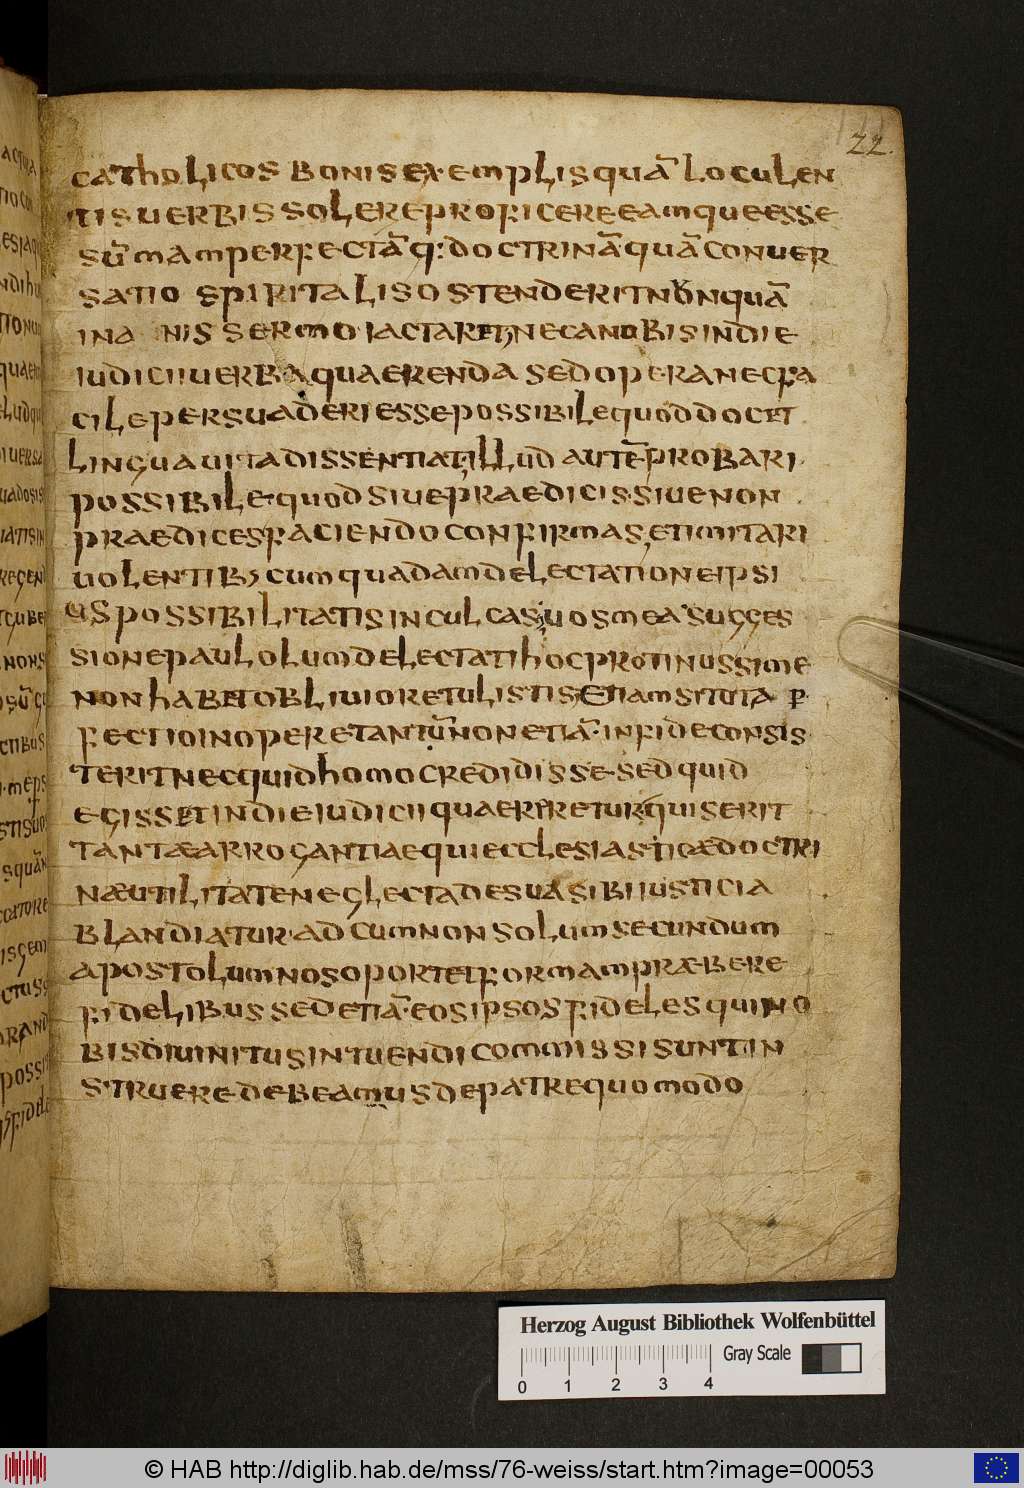 22.
catholicos bonis exemplis quā loculen
tis uerbis solere proficere eamque esse
sūmam perfectāq: doctrinā quā conuer
satio spiritalis ostenderit nōn quā
inanis sermo iactaret, nec a nobis in die
iudicii uerba quaerenda sed opera nec fa
cile persuaderi esse possibile quod docet
lingua uita dissentiat, illud autē probari
possibile quod siue praedicis siue non
praedices faciendo confirmas, et imitari
uolentib; cum quadam delectatione ipsi
us possibilitatis inculcas, uos mea succes
sione paululum delectati hoc protinus si me
non habet obliuio retulistis, etiam si tota p̲
fectio in opere tantūm non etiā in fide consis
terit nec quid homo credidisse sed quid
egisset in die iudicii quaereretur, quis erit
tantæ arrogantiae qui ecclesiasticæ doctri
næ utilitate neglecta de sua sibi iusticia
blandiatur ad cum non solum secundum
apostolum nos oportet formam præbere
fidelibus sed etiā eos ipsos fideles qui no
bis diuinitus intuendi commissi sunt in
struere debeamus de patre quomodo
Herzog August Bibliothek Wolfenbüttel
Gray Scale
0 1 2 3 4
© HAB http://diglib.hab.de/mss/76-weiss/start.htm?image=00053